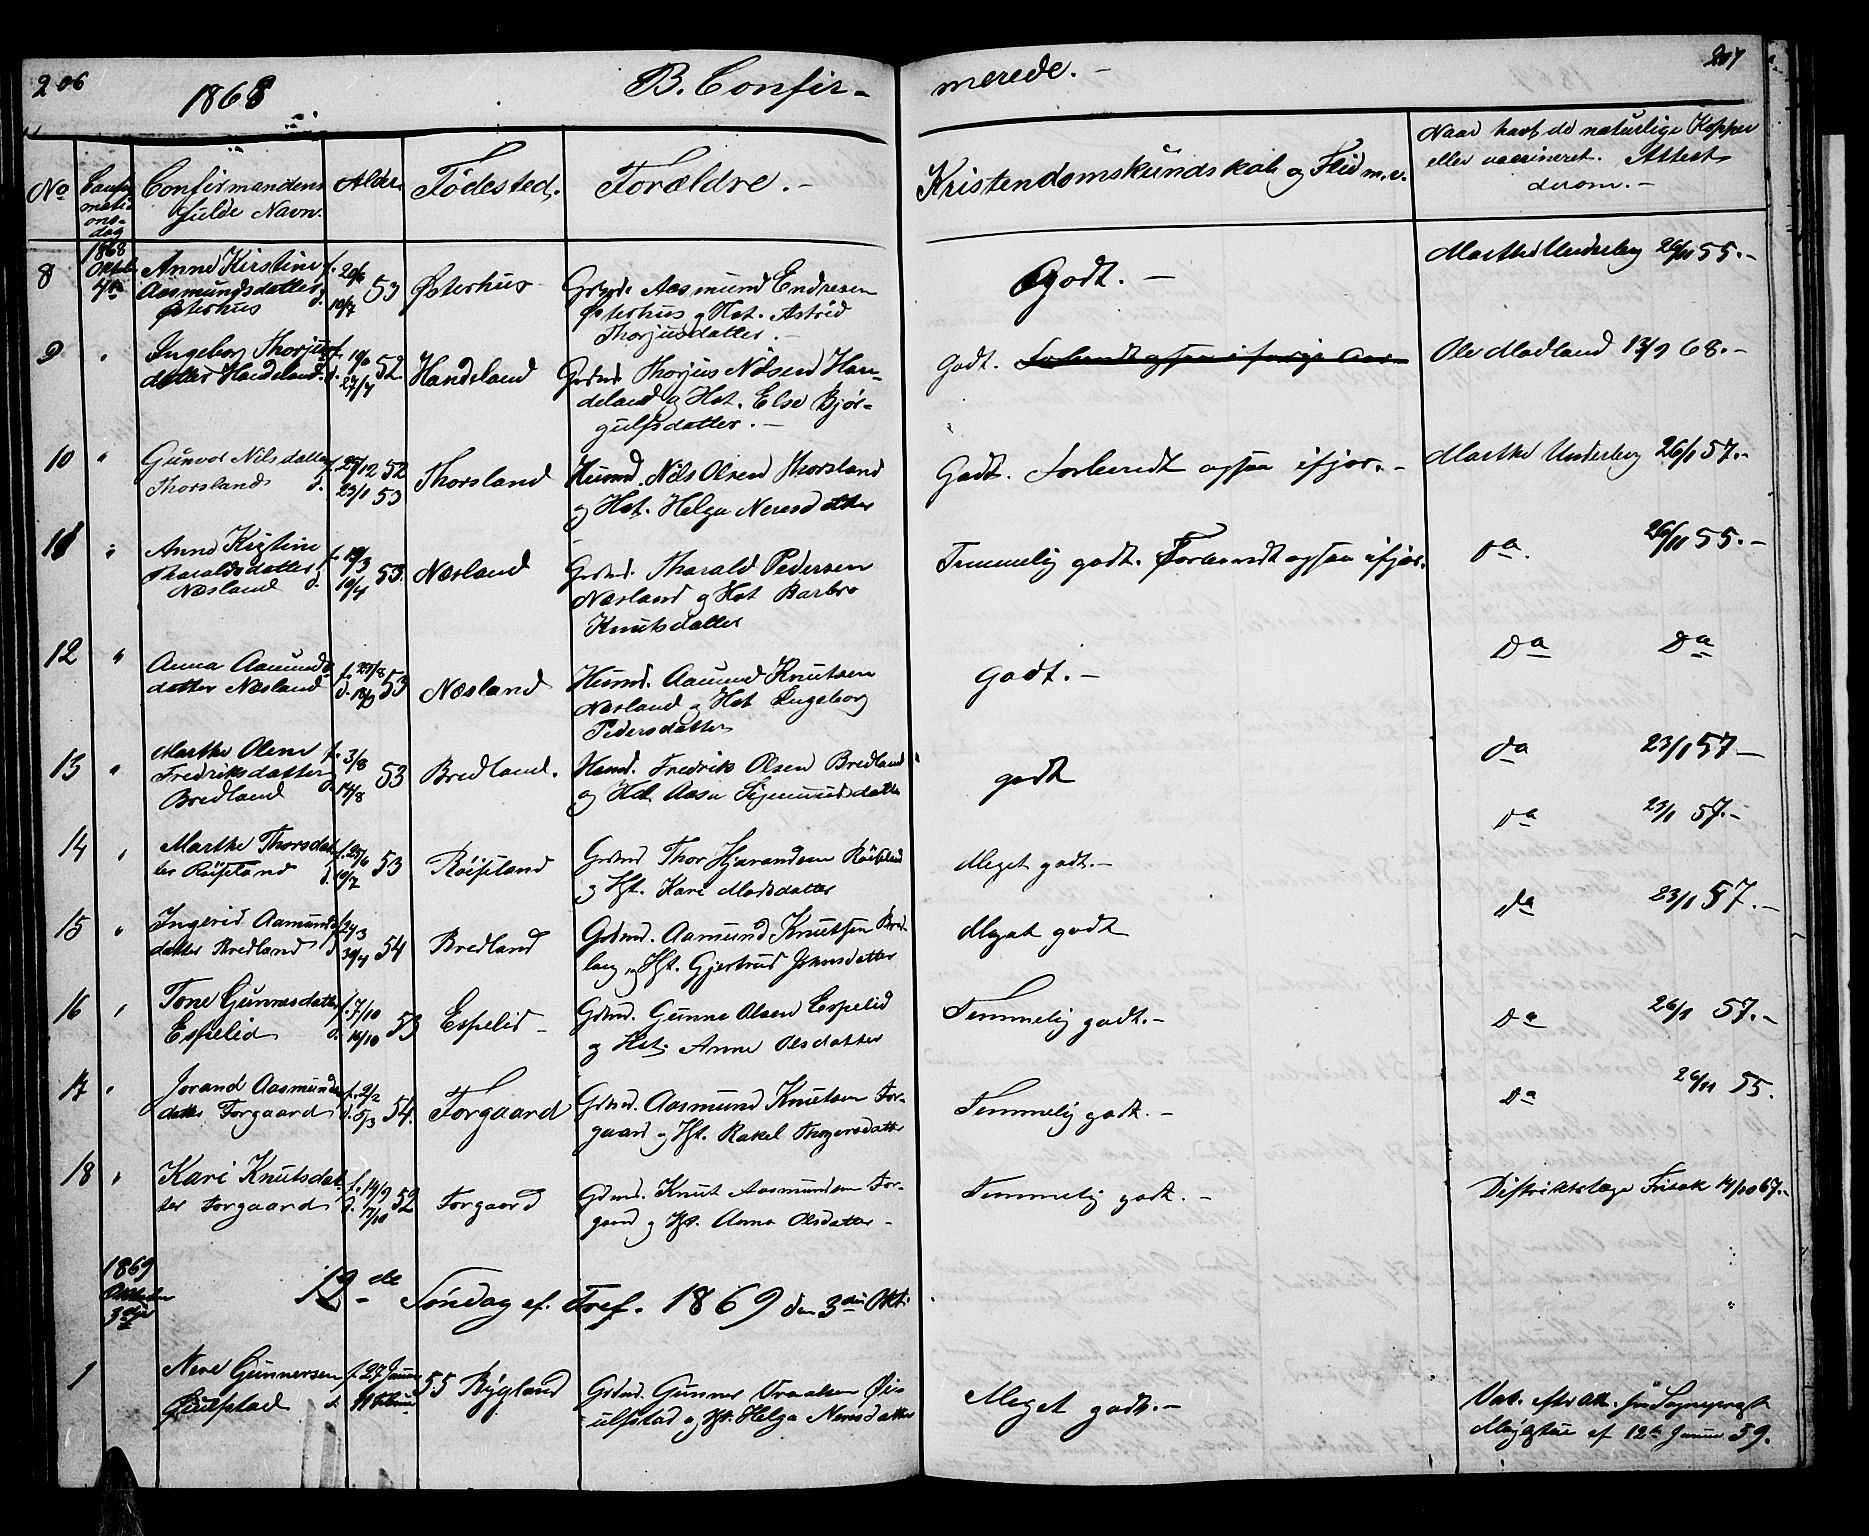 206
1868
B. Confir-
merede. -
207
No
Confir
mati
ons-
dag
Confirmandens
fulde Navn.
Alder
Fødested.
Forældre. -
Kristendomskundskab og Flid m.v.
Naar havt de naturlige Kopper
eller vaccineret. Attest
derom. -
8
1868
Oktob
4de
Anne Kirstine
Aasmundsdatter
Østerhus
f. 20/6
d. 10/7 53
Østerhus
Grbmd. Aasmund Endresen
Østerhus og Hst. Astrid
Thorjusdatter. -
Godt. -
Marthe Underberg 26/11 55. -
9
"
Ingeborg Thorjus
datter Handeland.
f. 19/6
d. 27/7 52
Handeland
Grdmd. Thorjus Nilsen Han-
deland og Hst. Else Bjør-
gulfsdatter. -
Godt. Forberedt ogsaa i forrige Aar
Ole Madland 13/9 68. -
10
"
Gunvor Nilsdatter
Thorsland
f. 25/12 52
d. 23/1 53
Thorsland
Husmd. Nils Olsen Thorsland
og Hst. Helga Neresdatter
Godt. Forberedt ogsaa ifjor. -
Marthe Underberg 26/1 57. -
11
"
Anne Kirstine
Tharaldsdatter
Næsland
f. 12/3
d. 10/4 53.
Næsland
Grdmd. Tharald Pedersen
Næsland og Hst Barbro
Knutsdatter
Temmelig godt. Forberedt ogsaa ifjor.
da. 26/11 55. -
12
"
Anna Aamunds
datter Næsland
f. 23/8
d. 18/9 53
Næsland
Husmd. Aamund Knutsen
Næsland og Hst Ingeborg
Pedersdatter
Godt. -
Da Da
13
"
Marthe Olene
Fredriksdatter
Bredland
f. 3/8
d. 14/8 53
Bredland.
Husmd. Fredrik Olsen Bredland
og Hst Aasa Sigmundsdatter
godt
da 23/1 57 -
14
"
Marthe Thorsdat
ter Røisland
f. 25/6
d. 10/7 53
Røisland
Grdmd Thor Hjarandsen Røisland
og Hst. Kari Madsdatter
Meget godt. -
da 23/1 57. -
15
"
Ingerid Aamunds
datter Bredland
f. 24/3
d. 30/4 54
Bredland
Grdmd. Aamund Knutsen Bred-
land og Hst. Gjertrud Johnsdatter
Meget godt
da 23/1 57. -
16
"
Tone Gunnesdatter
Espelid
f. 7/10
d. 16/10 53
Espelid -
Grdmd. Gunne Olsen Espelid
og Hst. Anne Olsdatter
Temmelig godt. -
Da 26/1 57. -
17
"
Jorand Aasmunds
datter Forgaard
f. 2/2
d. 5/3 54.
Forgaard
Grdmd. Aasmund Knutsen For-
gaard og Hst. Rakel Thorgersdatter
Temmelig godt. -
Da 26/11 55.
18
"
Kari Knutsdat
ter Forgaard
f. 14/9
d. 7/10 52
Forgaard
Grdmd. Knut Aasmundsen For-
gaard og Hst. Anna Olsdatter -
Temmelig godt. -
Distriktslæge Frisak 14/10 67. -
1869
Oktober
3die
19de Søndag ef. Tref. 1869 den 3die Okt.
1
Nere Gunnersen
Øiulfstad
f. 27 Januar
d. 11 Februar
55
Bygland
Grdmd. Gunner Oraalsen Øi-
ulfstad og Hst. Helga Neresdatter
Meget godt. -
Vak. efter Att. fra Sognepræst
Møgstue af 12te Januar 59.